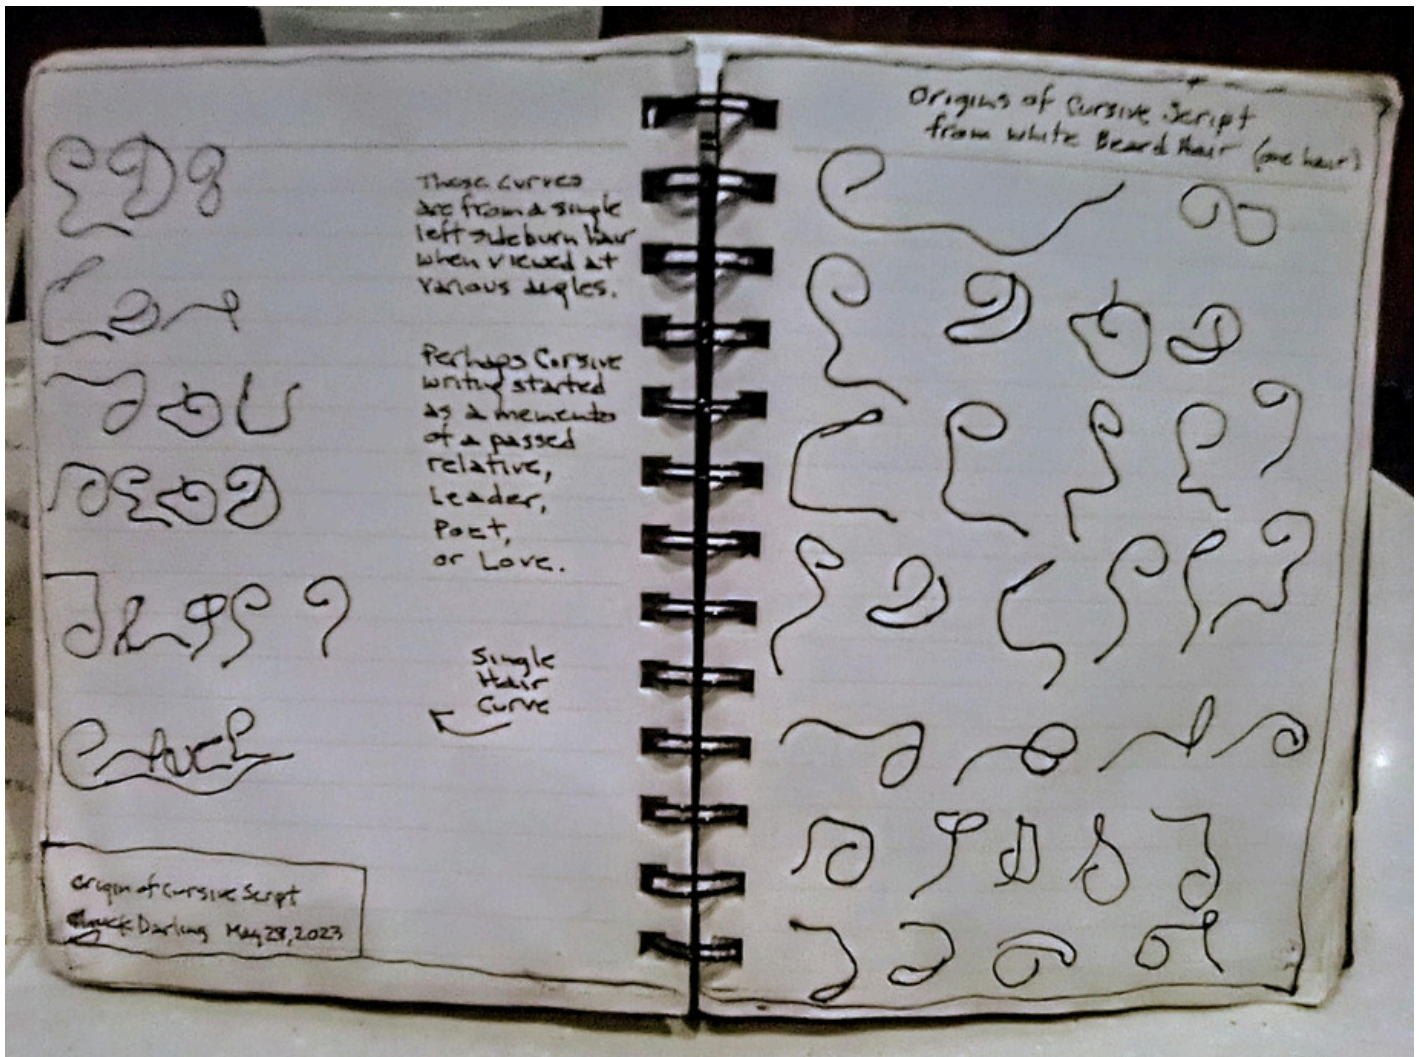 These curves
are from a single
left sideburn hair
when viewed at
various angles.
Perhaps Cursive
writing started
as a memento
of a passed
relative,
Leader,
Poet,
or Love.
Single
Hair
Curve
Origin of Cursive Script
Chuck Darling May 28, 2023
Origins of Cursive Script
from white Beard Hair (one hair)